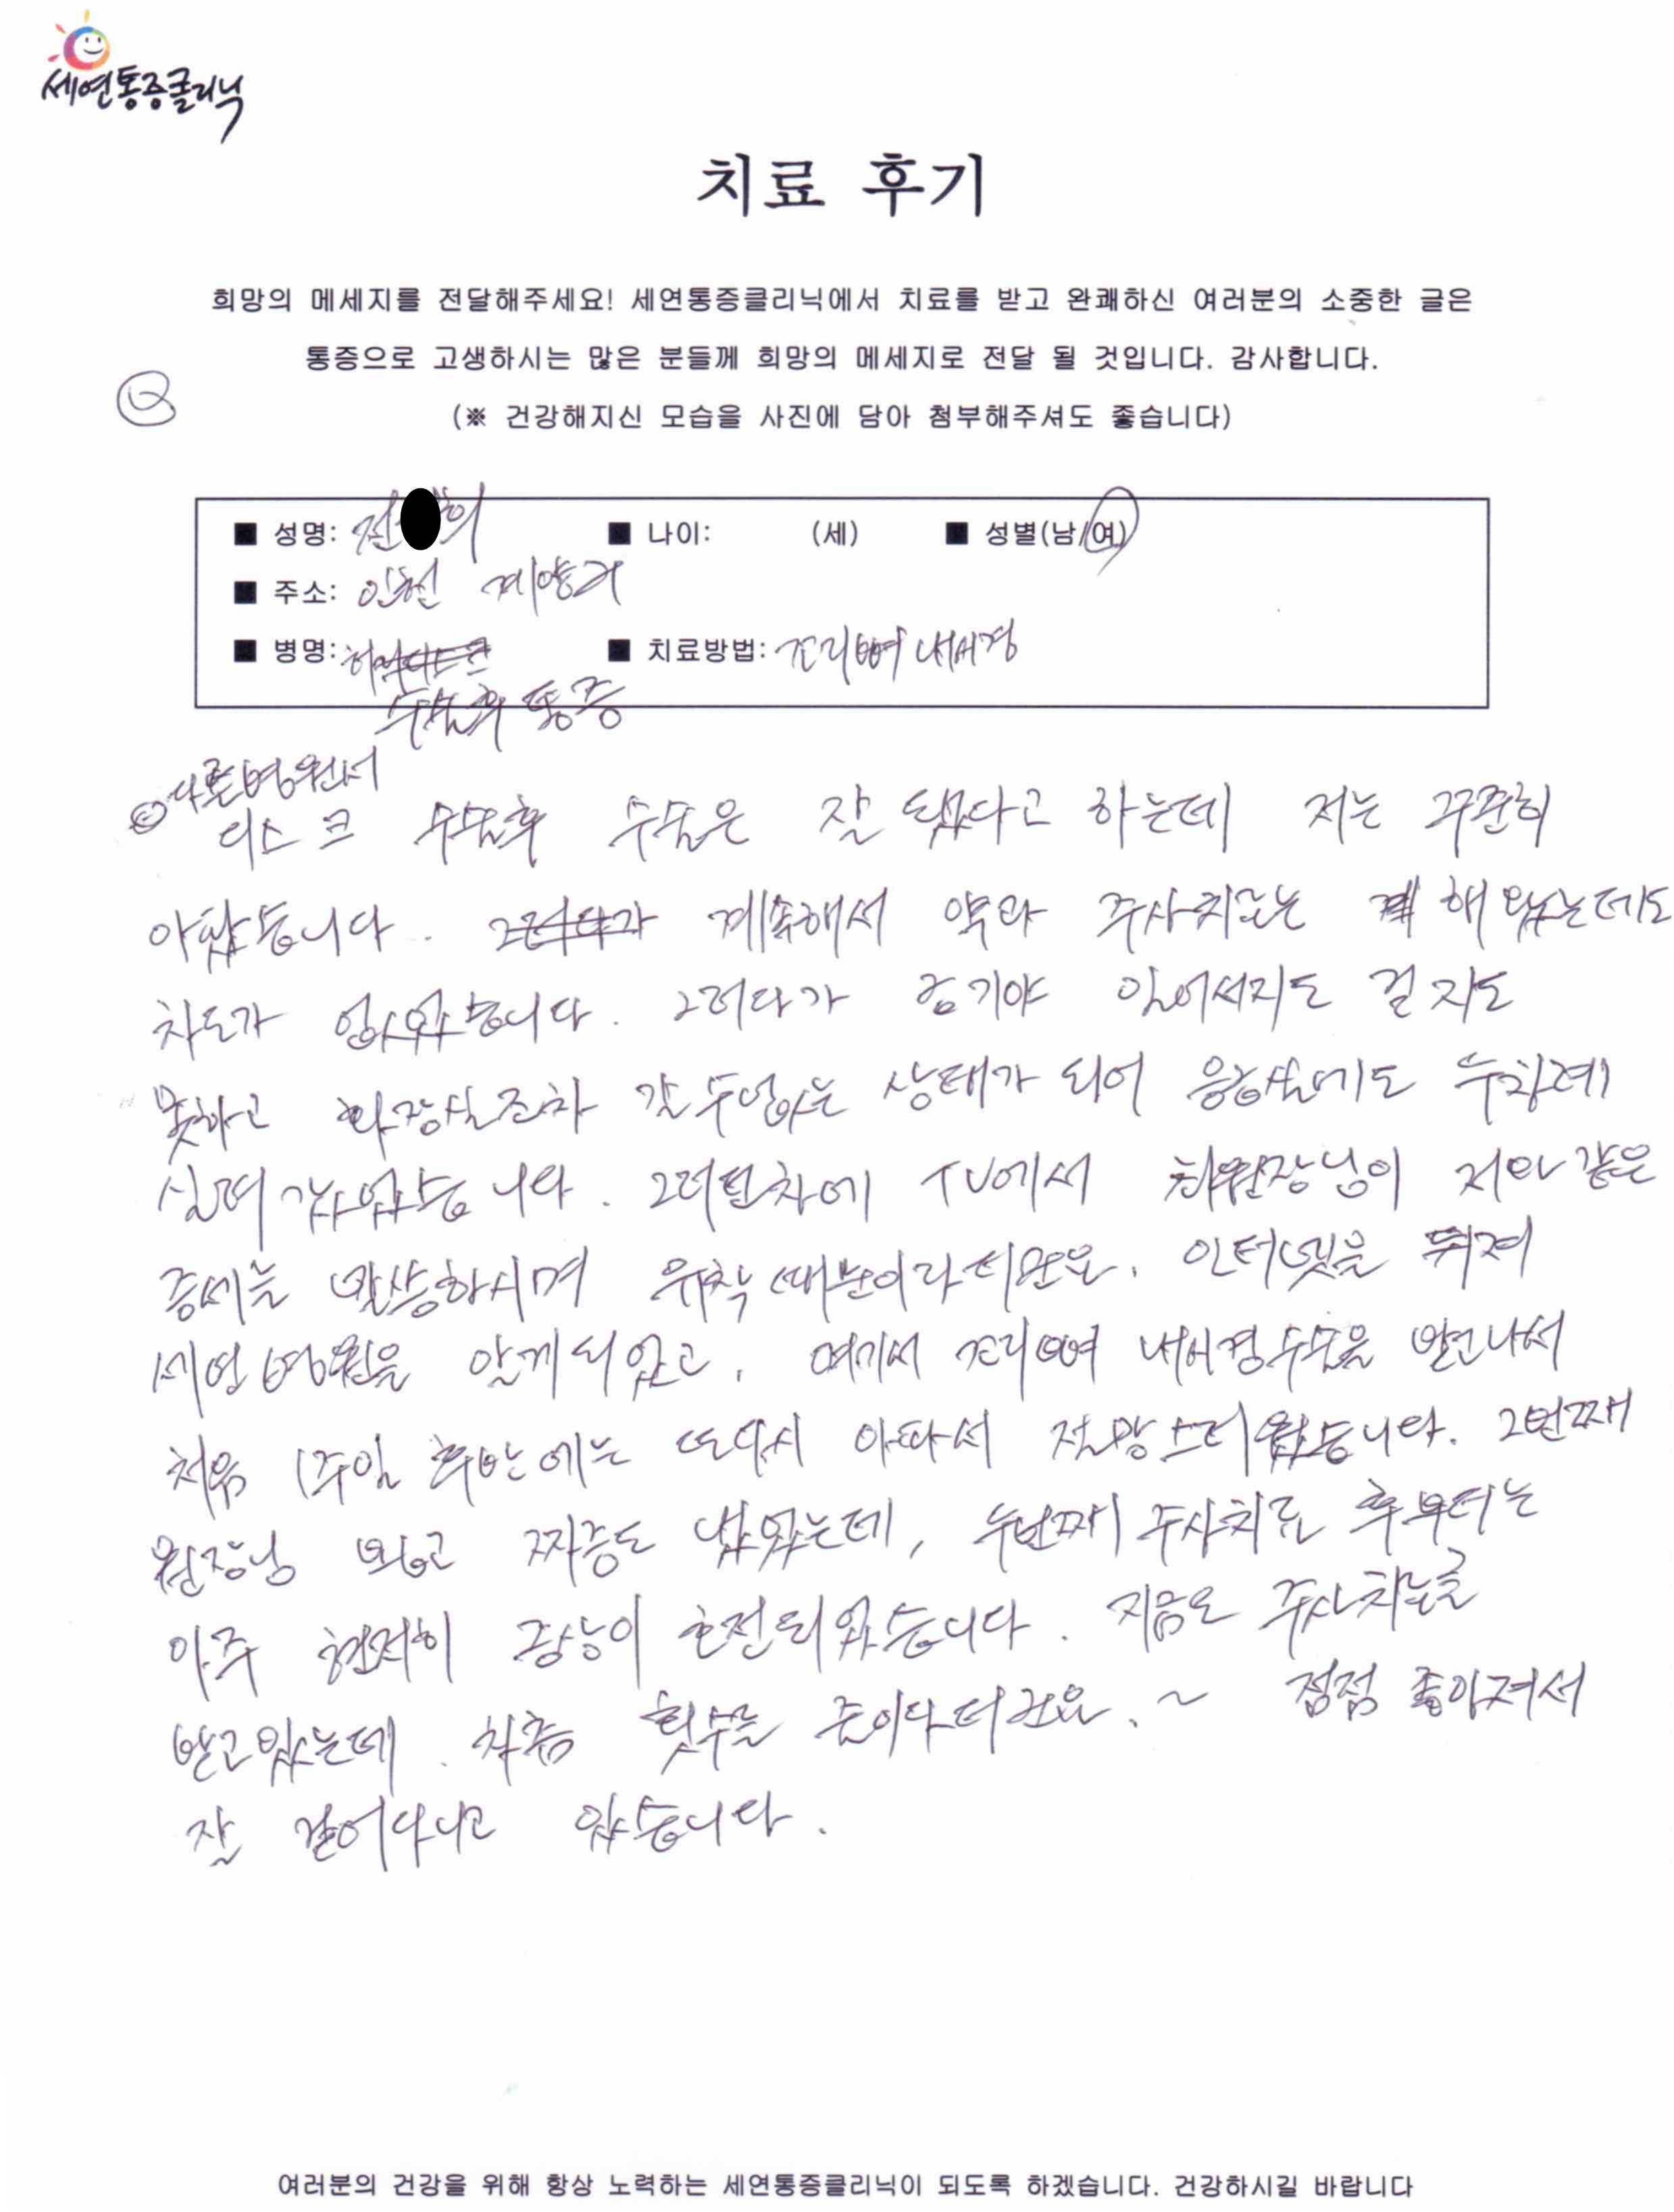 세연통증클리닉
치료 후기
희망의 메세지를 전달해주세요! 세연통증클리닉에서 치료를 받고 완쾌하신 여러분의 소중한 글은
통증으로 고생하시는 많은 분들께 희망의 메세지로 전달 될 것입니다. 감사합니다.
(※ 건강해지신 모습을 사진에 담아 첨부해주셔도 좋습니다)
■ 성명: 전 의 ■ 나이: (세) ■ 성별(남/여)
■ 주소: 인천 계양구
■ 병명: 허리디스크 ■ 치료방법: 꼬리뼈 내시경
수술후 통증
다른병원서
디스크 수술후 수술은 잘 됐다고 하는데 저는 꾸준히
아팠습니다. 그러다가 계속해서 약과 주사치료는 해 왔는데도
차도가 없었습니다. 그러다가 급기야 일어서지도 걷지도
못하고 화장실조차 갈수없는 상태가 되어 응급실에도 두차례
실려 갔었습니다. 그러던차에 TV에서 최원장님이 저와 같은
증세는 말씀하시며 유착 때문이라더군요. 인터넷을 뒤져
세연병원을 알게되었고, 여기서 꼬리뼈 내시경수술을 받고나서
처음 1주일 후반에는 또다시 아파서 절망스러웠습니다. 2번째
원장님 뵙고 짜증도 냈었는데, 두번째 주사치료 후부터는
아주 현저히 증상이 호전되었습니다. 지금도 주사치료를
받고있는데. 차츰 횟수를 줄이다더군요. ~ 점점 좋아져서
잘 걸어다니고 있습니다.
여러분의 건강을 위해 항상 노력하는 세연통증클리닉이 되도록 하겠습니다. 건강하시길 바랍니다